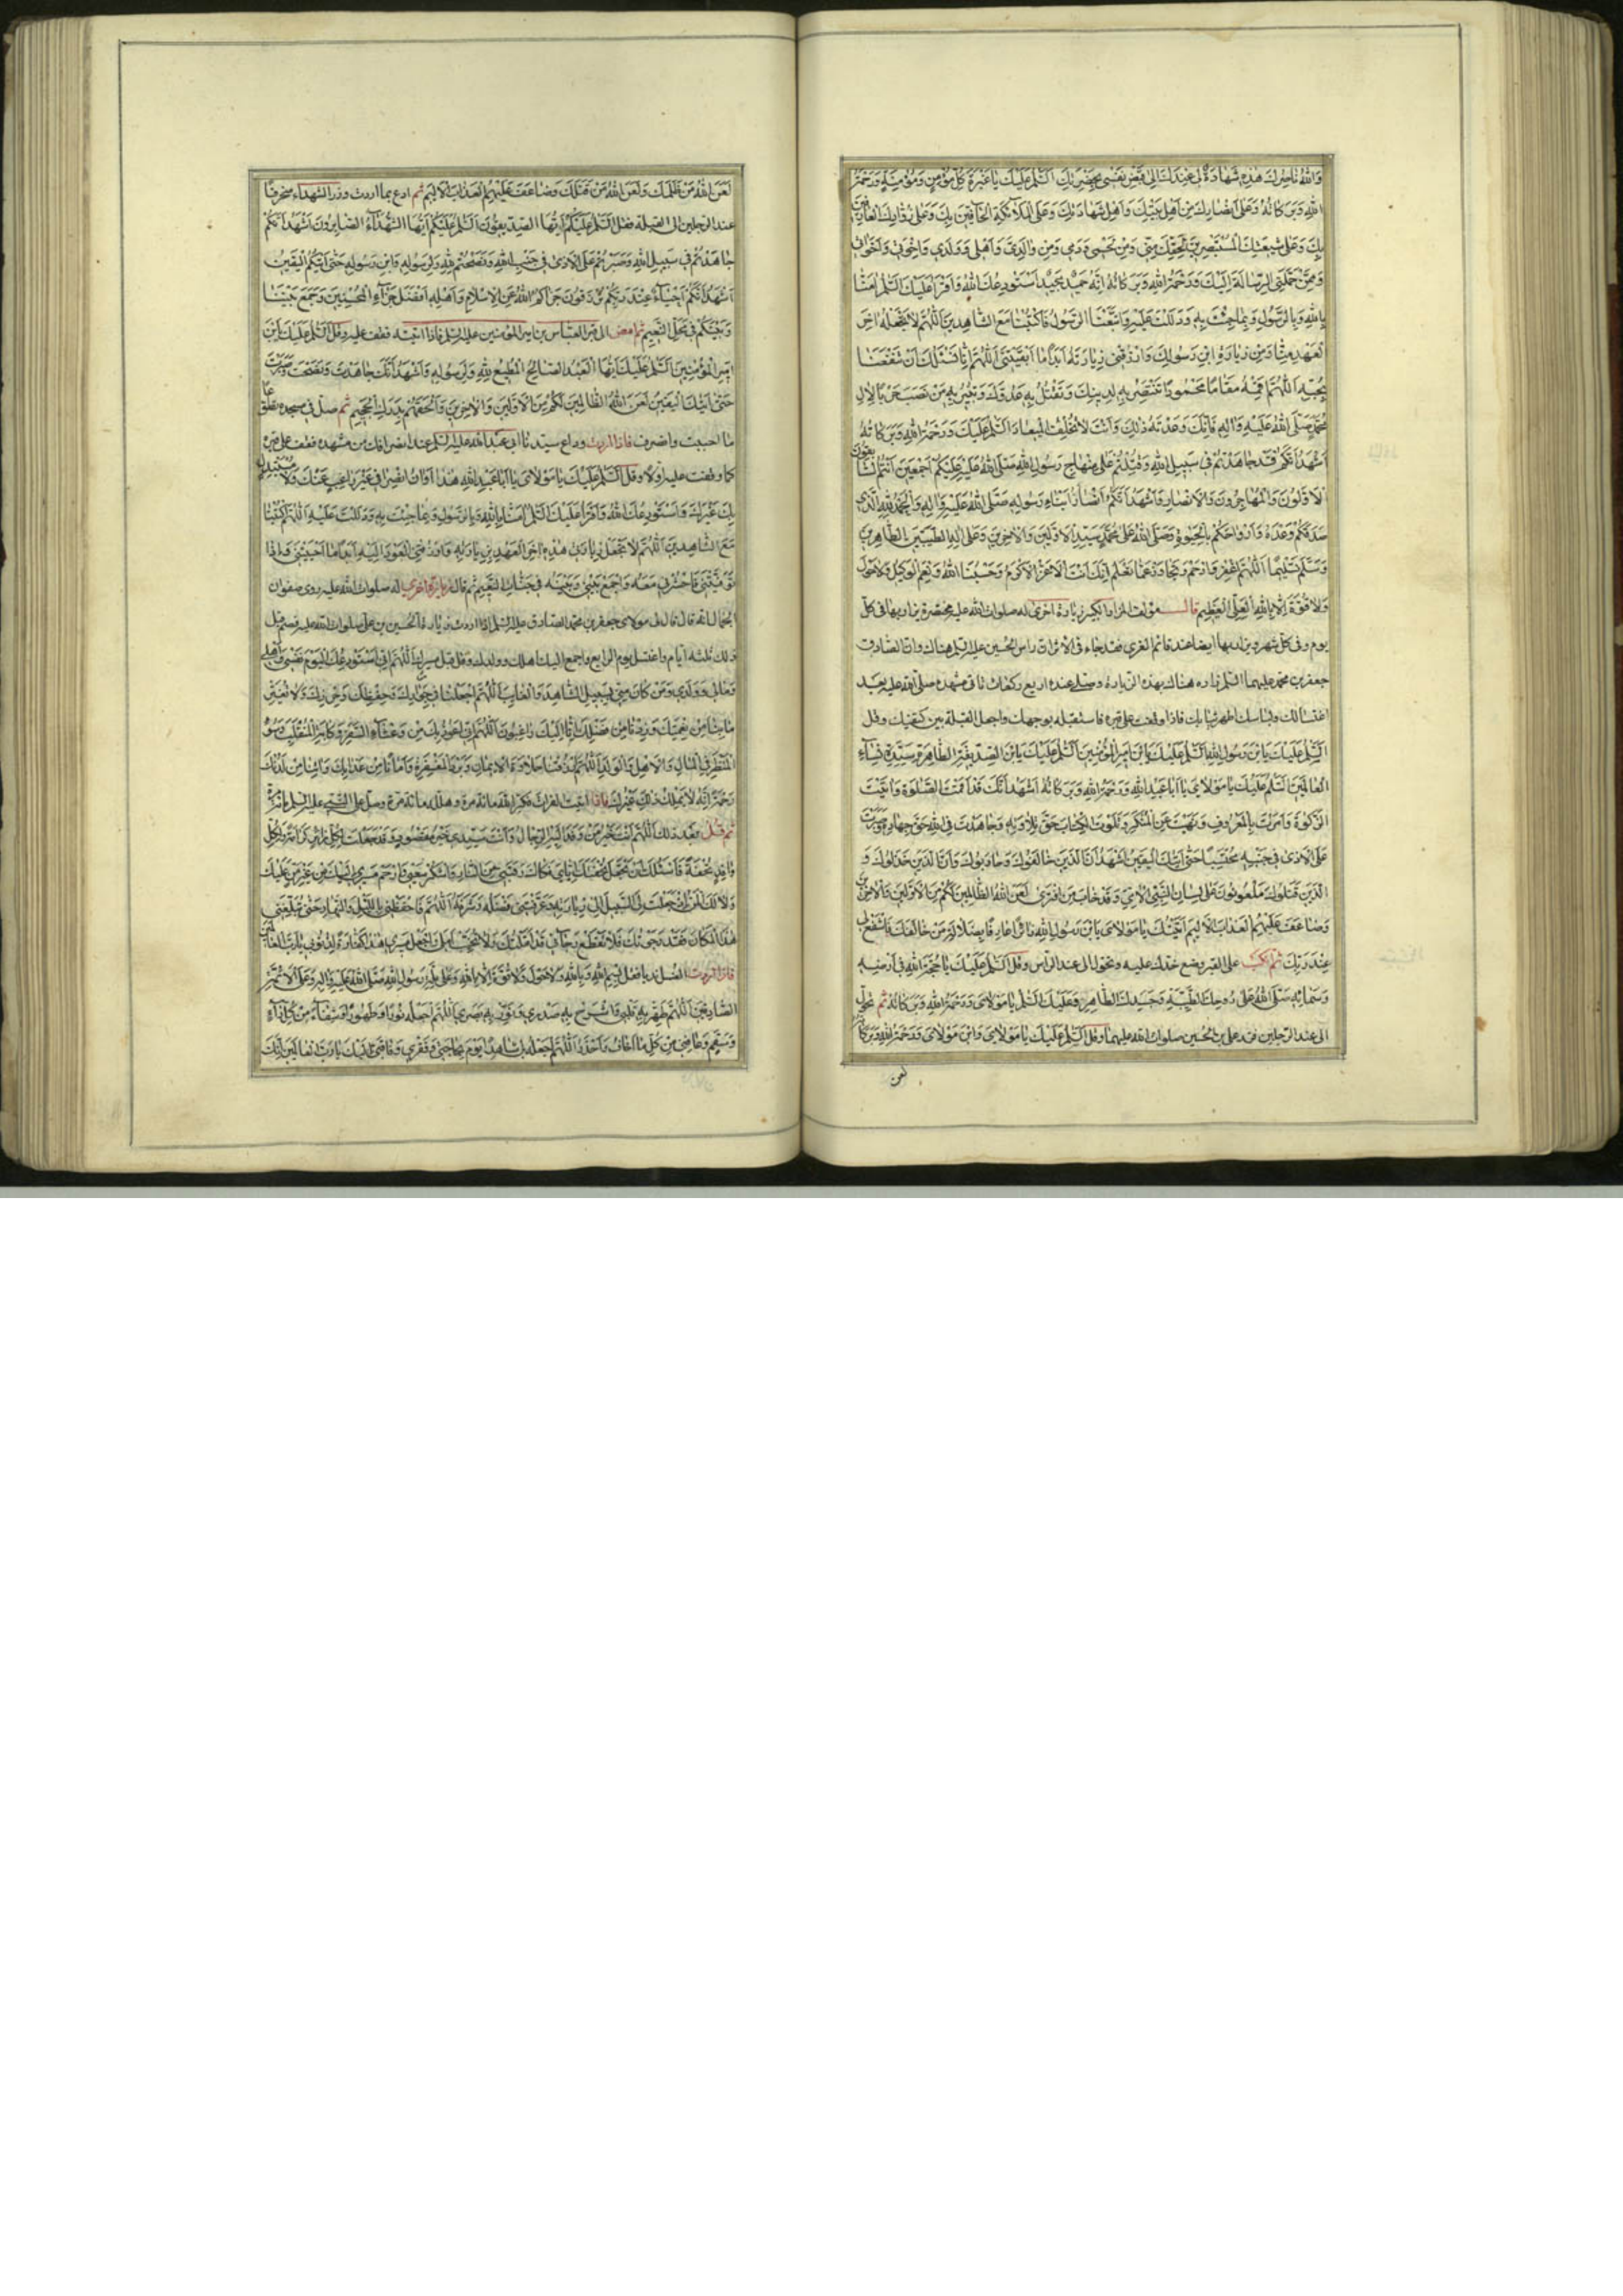 والله ناصرك هذه شهادة لي عندك الى يوم قبض نفسي بحضرتك السلم عليك يا عبرة كل مؤمن ومؤمنة ورحمة
الله وبركاته وعلى انصارك من اهل بيتك واهل شهادتك وعلى الملائكة الحافين بك وعلى زوارك العارفين
بك وعلى شيعتك المستبصرين بحقك مني ومن لحمي ودمي ومن والدي واهلي وولدي واخوتي واخواتي
وممن حملني الرسالة اليك ورحمة الله وبركاته انه حميد مجيد استودعك الله واقرأ عليك السلم امنا
بالله وبالرسول وبما جئت به ودللت عليه واتبعنا الرسول فاكتبنا مع الشاهدين اللهم لا تجعله اخر
العهد منا ومن زيارة ابن رسولك وارزقني زيارته ابدا ما ابقيتني اللهم انا نسئلك ان تنفعنا
بحبه اللهم ابعثه مقاما محمودا تنتصر به لدينك وتقتل به عدوك وتبير به من نصب حربا لال
محمد صلى الله عليه واله فانك وعدته ذلك وانت لا تخلف الميعاد السلم عليك ورحمة الله وبركاته
اشهد انكم قد جاهدتم في سبيل الله وقتلتم على منهاج رسول الله صلى الله عليه عليكم اجمعين انتم السابقون
الاولون والمهاجرون والانصار واشهد انكم انصار ابناء رسوله صلى الله عليه واله والحمد لله الذي
صدقكم وعده وارواحكم بالحيوة وصلى الله على محمد سيد الاولين والاخرين وعلى اله الطيبين الطاهرين
وسلم تسليما اللهم اغفر وارحم وتجاوز عما تعلم انك انت الاعز الاكرم وحسبنا الله ونعم الوكيل ولا حول
ولا قوة الا بالله العلي العظيم قال مؤلف المزار الكبير زيارة اخرى له صلوات الله عليه مختصرة يزار بها في كل
يوم وفي كل شهر ويزار بها ايضا عند قائم الغري فقد جاء في الاثر ان راس الحسين عليه السلم هناك وان الصادق
جعفر بن محمد عليهما السلم زاره هناك بهذه الزيارة وصلى عنده اربع ركعات تاتي مشهده صلى الله عليه بعد
اغتسالك ولباسك اطهر ثيابك فاذا وقفت على قبره فاستقبله بوجهك واجعل القبلة بين كتفيك وقل
السلم عليك يابن رسول الله السلم عليك يابن امير المؤمنين السلم عليك يابن الصديقة الطاهرة سيدة نساء
العالمين السلم عليك يا مولاي يا ابا عبد الله ورحمة الله وبركاته اشهد انك قد اقمت الصلوة واتيت
الزكوة وامرت بالمعروف ونهيت عن المنكر وتلوت الكتاب حق تلاوته وجاهدت في الله حق جهاده وصبرت
على الاذى في جنبه محتسبا حتى اتيك اليقين اشهد ان الذين خالفوك وحاربوك وان الذين خذلوك و
الذين قتلوك ملعونون على لسان النبي الامي وقد خاب من افترى لعن الله الظالمين لكم من الاولين والاخرين
وضاعف عليهم العذاب الاليم اتيتك يا مولاي يابن رسول الله زائرا عارفا بضلالة من خالفك فاشفع لي
عند ربك ثم انكب على القبر وضع خدك عليه وتحول الى عند الراس وقل السلم عليك يا حجة الله في ارضه
وسمائه صلى الله على روحك الطيبة وجسدك الطاهر وعليك السلم يا مولاي ورحمة الله وبركاته ثم تحول
الى عند الرجلين فزر علي بن الحسين صلوات الله عليهما وقل السلم عليك يا مولاي وابن مولاي ورحمة الله وبركاته
لعن
لعن الله من ظلمك ولعن الله من قتلك وضاعف عليهم العذاب الاليم ثم ادع بما اردت وزر الشهداء منحرفا
عند الرجلين الى القبلة فقل السلم عليكم ايها الصديقون السلم عليكم ايها الشهداء الصابرون اشهد انكم
جاهدتم في سبيل الله وصبرتم على الاذى في جنب الله ونصحتم لله ولرسوله وابن رسوله حتى اتيكم اليقين
اشهد انكم احياء عند ربكم ترزقون جزاكم الله عن الاسلام واهله افضل جزاء المحسنين وجمع بيننا
وبينكم في محل النعيم ثم امض الى قبر العباس بن امير المؤمنين عليه السلم فاذا اتيته فقف عليه وقل السلم عليك يابن
امير المؤمنين السلم عليك ايها العبد الصالح المطيع لله ولرسوله واشهد انك جاهدت ونصحت وصبرت
حتى اتيك اليقين لعن الله الظالمين لكم من الاولين والاخرين والحقهم بدرك الجحيم ثم صل في مسجده تطوعا
ما احببت وانصرف فاذا اردت وداع سيدنا ابي عبد الله عليه السلم عند انصرافك من مشهده فقف على قبره
كما وقفت عليه اولا وقل السلم عليك يا مولاي يا ابا عبد الله هذا اوان انصرافي غير راغب عنك ولا مستبدل
بك غيرك واستودعك الله واقرأ عليك السلم امنا بالله وبالرسول وبما جئت به ودللت عليه اللهم اكتبنا
مع الشاهدين اللهم لا تجعل زيارتي هذه اخر العهد من زيارته وارزقني العود اليه ابدا ما احييتني فاذا
توفيتني فاحشرني معه واجمع بيني وبينه في جنات النعيم ثم قال زيارة اخرى له صلوات الله عليه روى صفوان
الجمال انه قال قال لي مولاي جعفر بن محمد الصادق عليه السلم اذا اردت زيارة الحسين بن علي صلوات الله عليه فصم قبل
ذلك ثلثة ايام واغتسل يوم الرابع واجمع اليك اهلك وولدك وقل قبل مسيرك اللهم اني استودعك اليوم نفسي واهلي
ومالي وولدي ومن كان مني بسبيل الشاهد والغايب اللهم اجعلنا في جوارك وحفظك وحرزك ولا تغير
ما بنا من نعمتك وزدنا من فضلك انا اليك راغبون اللهم اني اعوذ بك من وعثاء السفر وكابة المنقلب وسوء
المنظر في المال والاهل والولد اللهم ارزقنا حلاوة الايمان وبرد المغفرة وامنا من عذابك واتنا من لدنك
رحمة انه لا يملك ذلك غيرك فاذا اتيت الفرات فكبر الله مائة مرة وهلله مائة مرة وصل على النبي عليه السلم مائة مرة
ثم قل بعد ذلك اللهم انت خير من وفد اليه الرجال وانت سيدي خير مقصود وقد جعلت لكل زائر كرامة ولكل
وافد تحفة فاسئلك ان تجعل تحفتك اياي فكاك رقبتي من النار واشكر سعيي وارحم مسيري اليك من غير من عليك
هذا المكان فقد رجوتك فلا تقطع رجائي قد املتك فلا تخيب املي اجعل مسيري هذا كفارة لذنوبي يا رب العالمين
فاذا اردت الغسل ندبا فقل بسم الله وبالله ولا حول ولا قوة الا بالله وعلى ملة رسول الله صلى الله عليه واله وعلى الائمة
الصادقين اللهم طهر به قلبي واشرح به صدري ونور به بصري اللهم اجعله نورا وطهورا وشفاء من كل داء
وسقم وعافني من كل ما اخاف واحذر اللهم اجعله لي شاهدا يوم حاجتي وفقري وفاقتي اليك يا رب العالمين انك